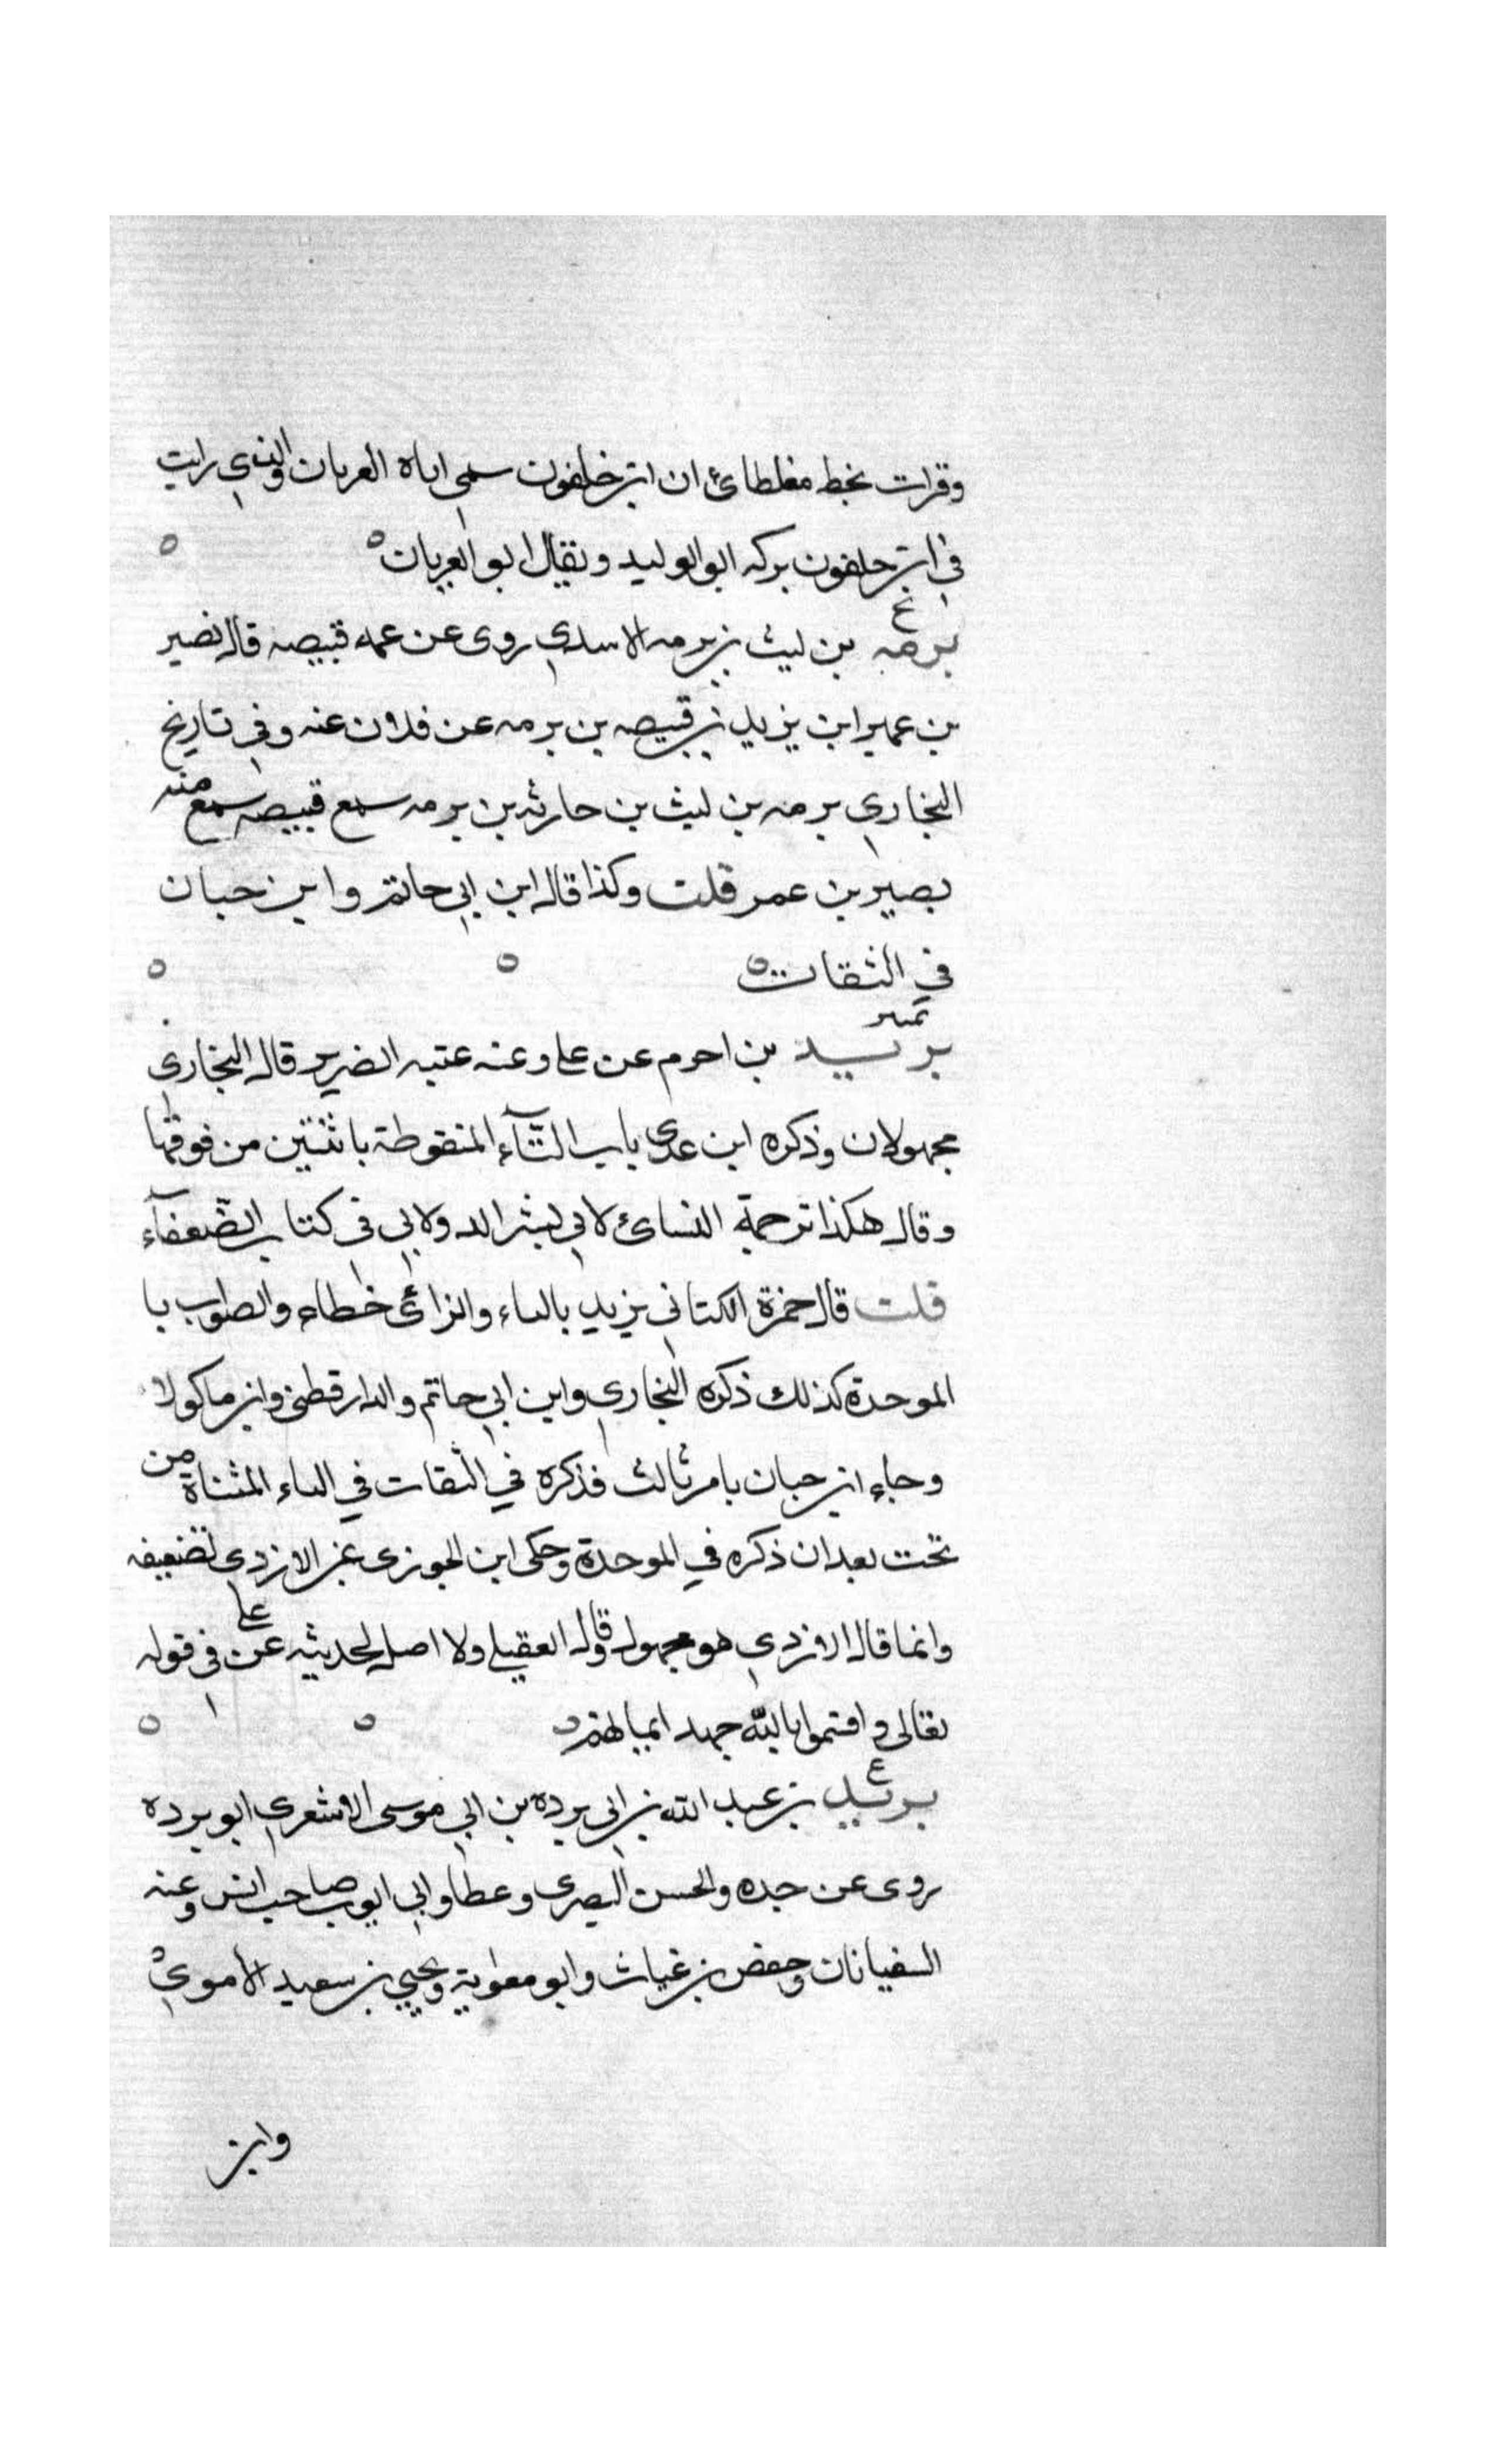 وقرات بخط مغلطائ ان ابن خلفون سمى اباه العريان والذي رايت
في ابن خلفون بركه ابو الوليد ويقال ابو العريان ه ه
ع
برمه بن ليث بن برمه الاسدي روى عن عمه قبيصه قاله نصير
بن عمير ابن يزيد بن قبيصه بن برمه عن فلان عنه وفي تاريخ
البخاري برمه بن ليث بن حارثه بن برمه سمع قبيصه سمع منه
بصير بن عمر قلت وكذا قاله ابن ابي حاتم وابن حبان
في الثقات ه ه ه
تمييز
بريد بن احرم عن علي وعنه عتبه الضرير قاله البخاري
مجهولان وذكره ابن عدي باب التآء المنقوطة باثنتين من فوقها
وقال هكذا ترجمة النسائ لابي بشر الدولابي في كتاب الضعفآء
قلت قال حمزة الكتاني يزيد بالياء والزائ خطاء والصواب با
الموحدة كذلك ذكره البخاري وابن ابي حاتم والدارقطني وابن ماكولا
وجاء ابن حبان بامر ثالث فذكره في الثقات في الياء المثناة من
تحت بعد ان ذكره في الموحدة وحكى ابن الجوزى عن الازدي تضعيفه
وانما قال الازدي هو مجهول وقال العقيلي ولا اصل لحديثه عن علي في قوله
تعالى واقسموا بالله جهد ايمانهم ه ه ه
ع
بريد بن عبد الله بن ابي برده بن ابي موسى الاشعري ابو برده
روى عن جده والحسن البصرى وعطا وابي ايوب صاحب انس وعنه
السفيانان وحفص بن غياث وابو معاوية ويحيي بن سعيد الاموي
وابن